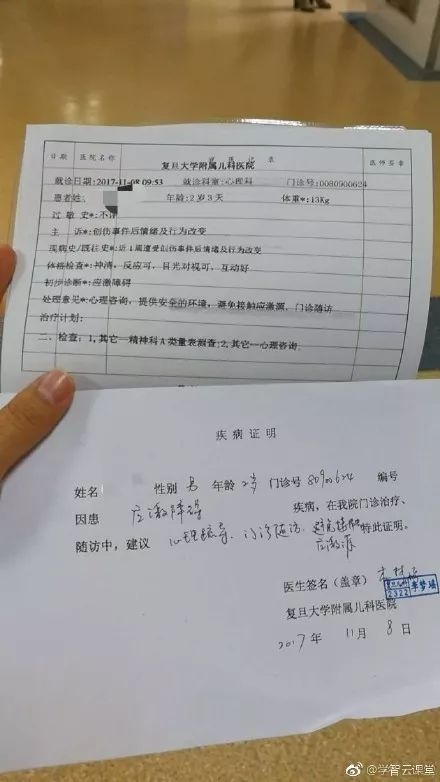 日期 医院名称 医师签章
复旦大学附属儿科医院
就诊日期:2017-11-08 09:53 就诊科室:心理科 门诊号:0080900624
患者姓 年龄:2岁3天 体重*:13Kg
过敏史*:不详
主 诉*:创伤事件后情绪及行为改变
现病史/既往史*:近1周遭受创伤事件后情绪及行为改变
体格检查*:神清，反应可，目光对视可，互动好
初步诊断*:应激障碍
处理意见*:心理咨询，提供安全的环境，避免接触应激源，门诊随访
治疗计划:
二、检查: 1,其它--精神科A类量表测查;2,其它--心理咨询.
疾病证明
姓名 性别 男 年龄 2岁 门诊号 80900624 编号
因患 应激障碍 疾病，在我院门诊治疗、
随访中，建议 心理疏导、门诊随访、避免接触 特此证明。
应激源
医生签名（盖章）
2322 李梦瑶
复旦大学附属儿科医院
2017年 11月 8日
@学智云课堂